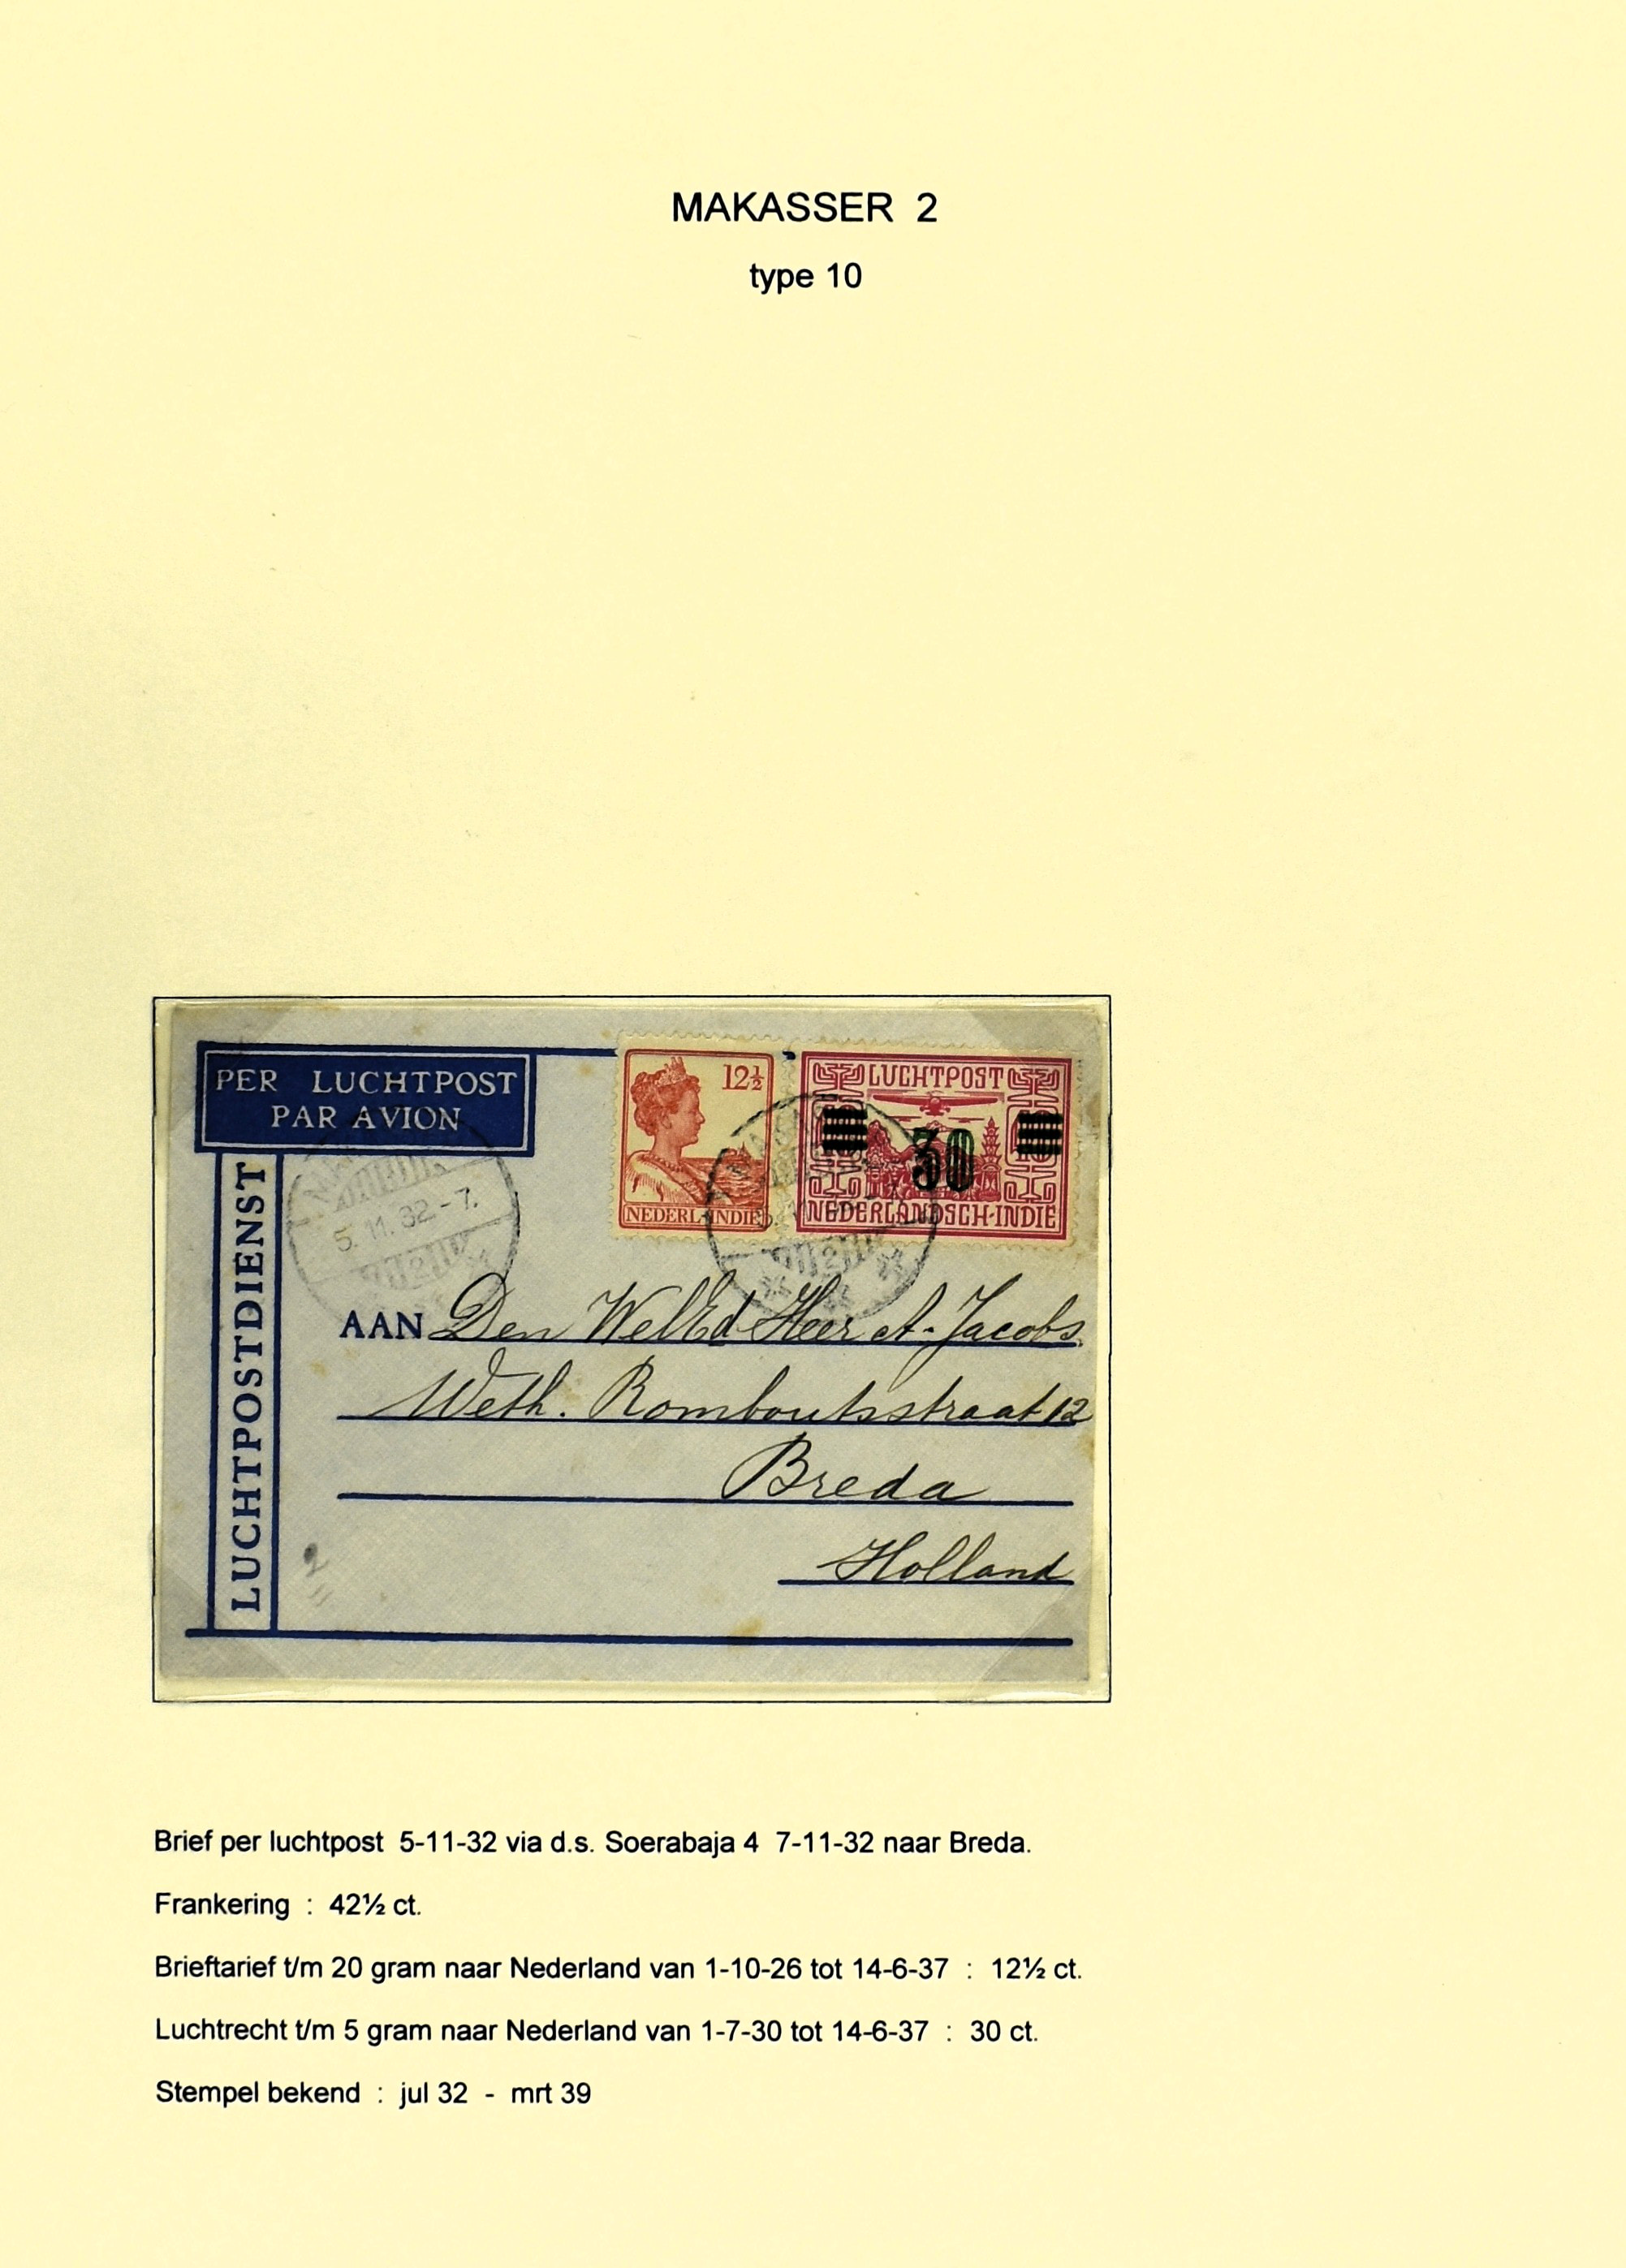 MAKASSER 2
type 10
PER LUCHTPOST
PAR AVION
LUCHTPOSTDIENST
12½
NEDERL-INDIE
LUCHTPOST
30
NEDERLANDSCH-INDIE
5.11.32-7.
2
2
AAN Den WelEd Heer A. Jacobs
Weth. Romboutsstraat 12
Breda
Holland
2
Brief per luchtpost 5-11-32 via d.s. Soerabaja 4 7-11-32 naar Breda.
Frankering : 42½ ct.
Brieftarief t/m 20 gram naar Nederland van 1-10-26 tot 14-6-37 : 12½ ct.
Luchtrecht t/m 5 gram naar Nederland van 1-7-30 tot 14-6-37 : 30 ct.
Stempel bekend : jul 32 - mrt 39